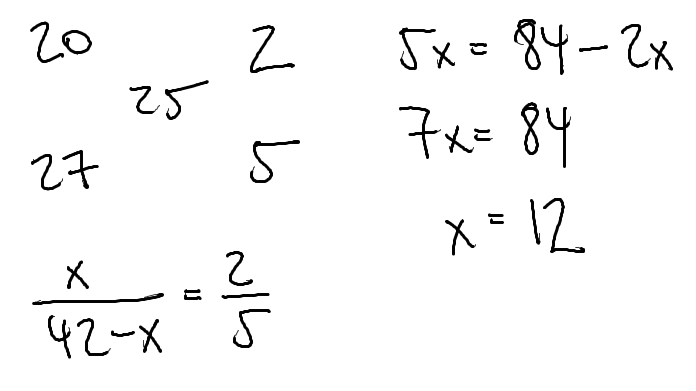 20 2
25
27 5
x/(42-x) = 2/5
5x = 84 - 2x
7x = 84
x = 12